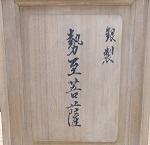 銀製
勢至菩薩